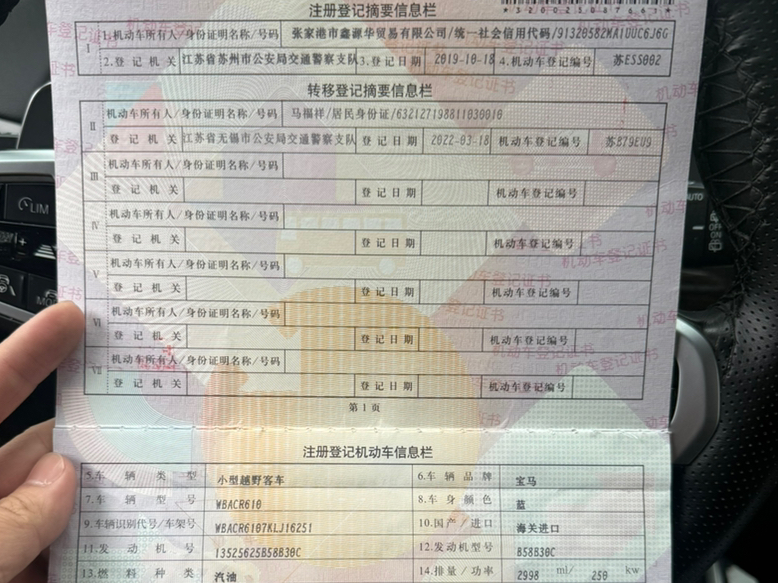 注册登记摘要信息栏
Ⅰ 1.机动车所有人/身份证明名称/号码 张家港市鑫源华贸易有限公司/统一社会信用代码/91320582MA1UUC6J6G
2.登记机关 江苏省苏州市公安局交通警察支队 3.登记日期 2019-10-18 4.机动车登记编号 苏ES5002
转移登记摘要信息栏
Ⅱ 机动车所有人/身份证明名称/号码 马福祥/居民身份证/632127198811030010
登记机关 江苏省无锡市公安局交通警察支队 登记日期 2022-03-18 机动车登记编号 苏B79EU9
Ⅲ 机动车所有人/身份证明名称/号码
登记机关 登记日期 机动车登记编号
Ⅳ 机动车所有人/身份证明名称/号码
登记机关 登记日期 机动车登记编号
Ⅴ 机动车所有人/身份证明名称/号码
登记机关 登记日期 机动车登记编号
Ⅵ 机动车所有人/身份证明名称/号码
登记机关 登记日期 机动车登记编号
Ⅶ 机动车所有人/身份证明名称/号码
登记机关 登记日期 机动车登记编号
第1页
注册登记机动车信息栏
5.车辆类型 小型越野客车 6.车辆品牌 宝马
7.车辆型号 WBACR610 8.车身颜色 蓝
9.车辆识别代号/车架号 WBACR6107KLJ16251 10.国产/进口 海关进口
11.发动机号 13525625B58B30C 12.发动机型号 B58B30C
13.燃料种类 汽油 14.排量/功率 2998 ml/ 250 kw
LIM
AUTO
OFF
ON